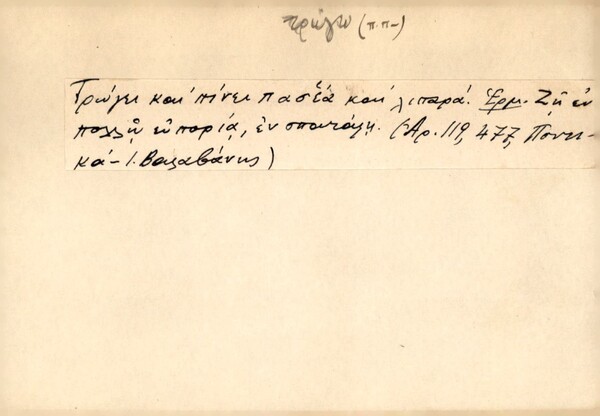 τρώγω (π.π-)
Τρώγει και πίνει παστά και λιπαρά. Ἑρμ. Ζῇ ἐν
πολλῇ εὐπορίᾳ, ἐν σπατάλῃ. (Ἀρ. 119, 477, Ποντι-
κά - Ι. Βαλαβάνης)